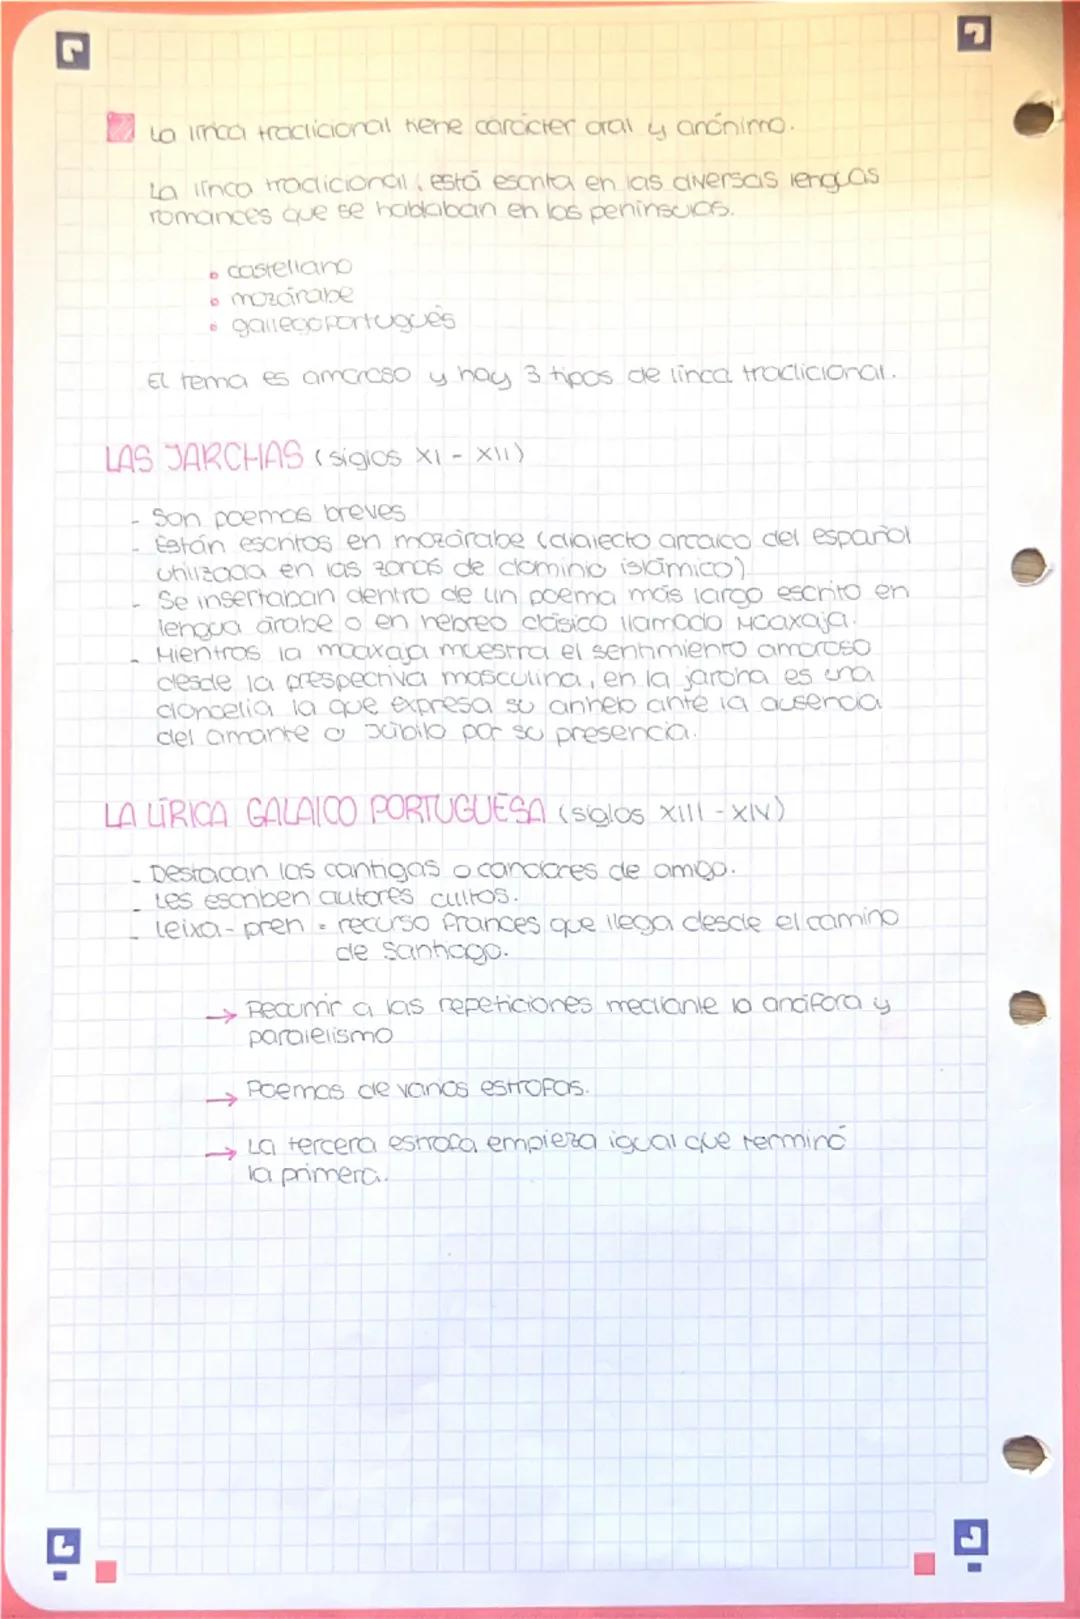 La lírica tradicional tiene carácter oral y anónimo.
La lírica tradicional, está escrita en las diversas lenguas
romances que se hablaban en las penínsulas.
castellano
mozárabe
gallegoportugués
El tema es amoroso y hay 3 tipos de lírica tradicional.
LAS JARCHAS (siglos XI - XII)
- Son poemas breves
- Están escritos en mozárabe (dialecto arcaico del español
utilizada en las zonas de dominio islámico)
- Se insertaban dentro de un poema más largo escrito en
lengua árabe o en hebreo clásico llamado Moaxaja.
- Mientras la moaxaja muestra el sentimiento amoroso
desde la prespectiva masculina, en la jarcha es una
doncella la que expresa su anhelo ante la ausencia
del amante o júbilo por su presencia.
LA LÍRICA GALAICO PORTUGUESA (siglos XIII - XIV)
- Destacan las cantigas o canciones de amigo.
- Les escriben autores cultos.
- Leixa-pren = recurso frances que llega desde el camino
de Santiago.
→ Recurrir a las repeticiones mediante la anáfora y
paralelismo
→ Poemas de varias estrofas.
→ La tercera estrofa empieza igual que terminó
la primera.